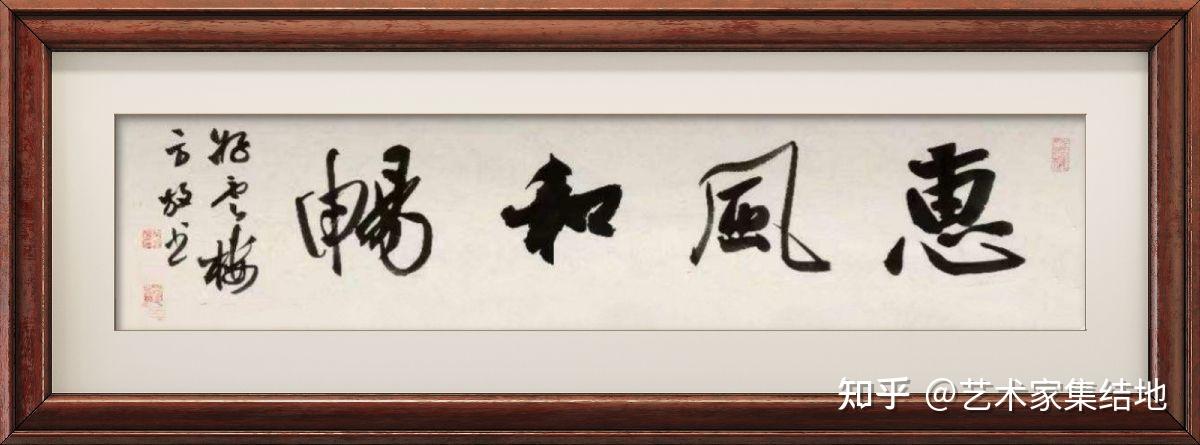 惠風和暢
雲梅
方放书
知乎 @艺术家集结地